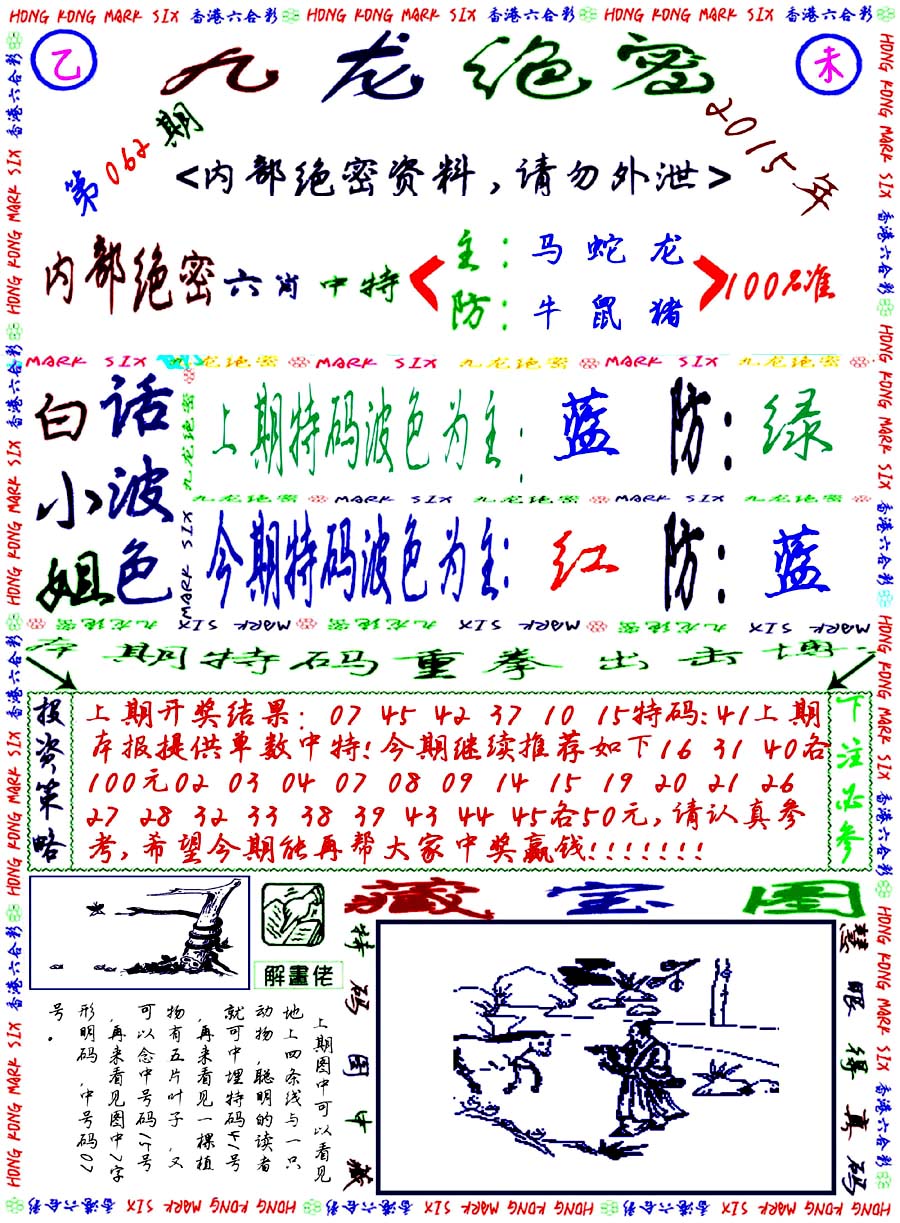 HONG KONG MARK SIX 香港六合彩 HONG KONG MARK SIX 香港六合彩 HONG KONG MARK SIX 香港六合彩
乙
九龙绝密
未
第062期
2015年
<内部绝密资料,请勿外泄>
内部绝密六肖中特
主:马 蛇 龙
防:牛 鼠 猪
100%准
MARK SIX 九龙绝密 MARK SIX 九龙绝密 MARK SIX 九龙绝密
白话小波姐色
上期特码波色为主:蓝 防:绿
九龙绝密 MARK SIX 九龙绝密 MARK SIX 九龙绝密
今期特码波色为主:红 防:蓝
MARK SIX 九龙绝密 MARK SIX 九龙绝密 MARK SIX 九龙绝密
本期特码重拳出击博
投资策略
上期开奖结果: 07 45 42 37 10 15特码:41上期
本报提供单数中特!今期继续推荐如下16 31 40各
100元02 03 04 07 08 09 14 15 19 20 21 26
27 28 32 33 38 39 43 44 45各50元,请认真参
考,希望今期能再帮大家中奖赢钱!!!!!!!
下注必参
藏宝图
解畫佬
特码图中藏
慧眼得真码
上期图中可以看见
地上四条线与一只
动物,聪明的读者
就可中埋特码41号
,再来看见一棵植
物有五片叶子,又
可以念中号码15号
,再来看见图中7字
形明码,中号码07
号。
HONG KONG MARK SIX 香港六合彩 HONG KONG MARK SIX 香港六合彩 HONG KONG MARK SIX 香港六合彩